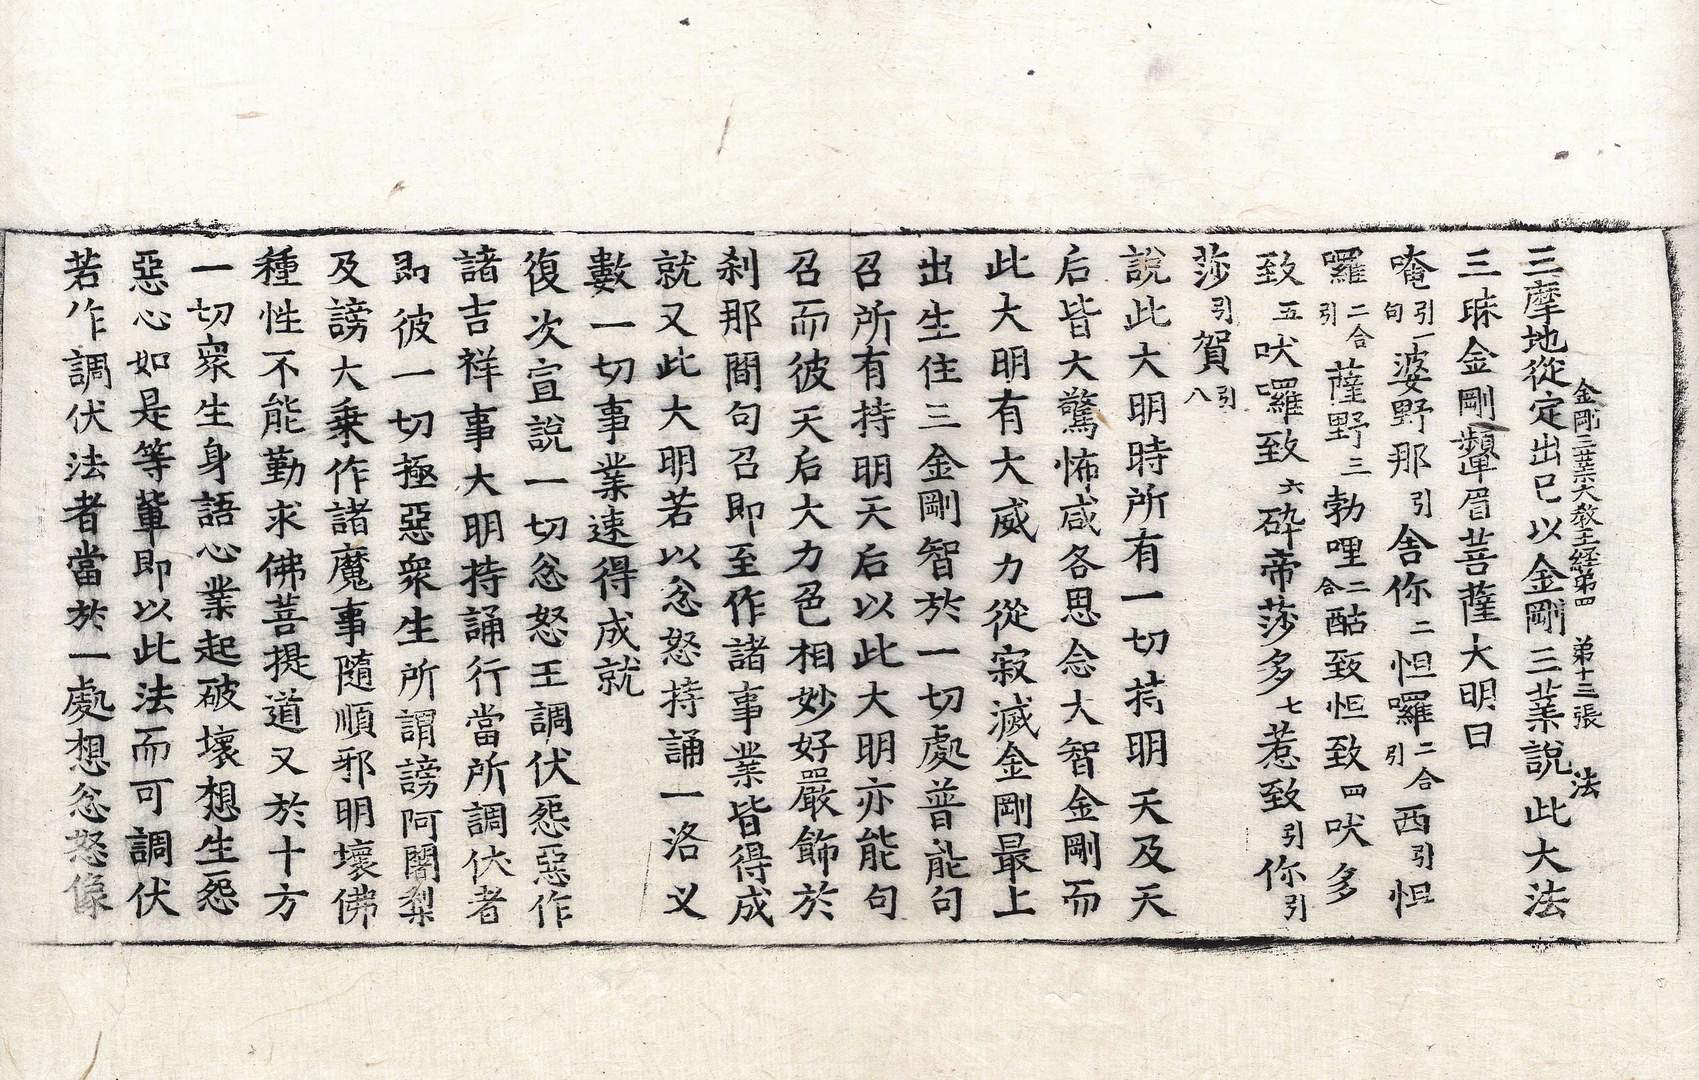 金剛三業大教王經第四　第十三張　法
三摩地從定出已以金剛三業說此大法
三昧金剛顰眉菩薩大明曰
唵引一句婆野那引舍你二怛囉二合引西引怛
囉二合引薩野三勃哩二合酤致怛致四吠多
致五吠囉致六碎帝莎多七惹致引你引
莎引賀引八
說此大明時所有一切持明天及天
后皆大驚怖咸各思念大智金剛而
此大明有大威力從寂滅金剛最上
出生住三金剛智於一切處普能句
召所有持明天后以此大明亦能句
召而彼天后大力色相妙好嚴飾於
剎那間句召即至作諸事業皆得成
就又此大明若以忿怒持誦一洛叉
數一切事業速得成就
復次宣說一切忿怒王調伏怨惡作
諸吉祥事大明持誦行當所調伏者
即彼一切極惡衆生所謂謗阿闍梨
及謗大乗作諸魔事隨順邪明壞佛
種性不能勤求佛菩提道又於十方
一切衆生身語心業起破壞想生怨
惡心如是等輩即以此法而可調伏
若作調伏法者當於一處想忿怒像